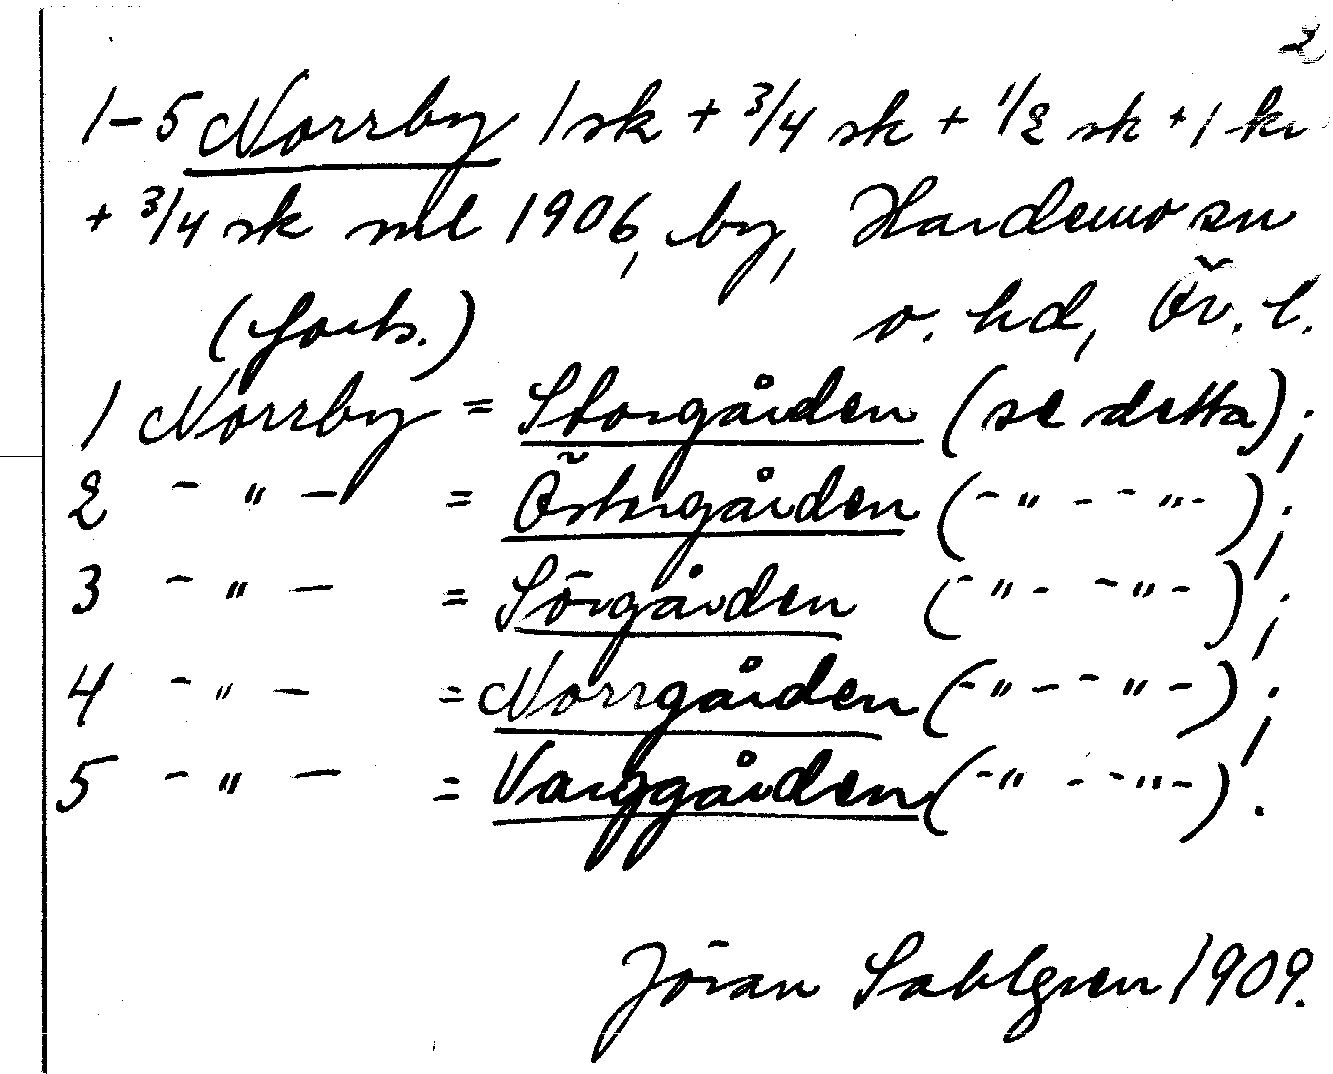 2
1-5 Norrby 1 sk + 3/4 sk + 1/2 sk + 1 kr
+ 3/4 sk ml 1906, by, Hardemo sn
(forts.) v. hd, Ör. l.
1 Norrby = Storgården (se detta);
2 - " - = Östergården (- " - - " -);
3 - " - = Sörgården (- " - - " -);
4 - " - = Norrgården (- " - - " -);
5 - " - = Varggården (- " - - " -).
Jöran Sahlgren 1909.